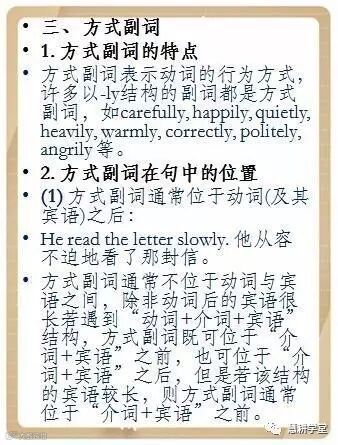 三、方式副词
1. 方式副词的特点
方式副词表示动词的行为方式，
许多以-ly结构的副词都是方式
副词，如carefully, happily, quietly,
heavily, warmly, correctly, politely,
angrily 等。
2. 方式副词在句中的位置
(1) 方式副词通常位于动词(及其
宾语)之后：
He read the letter slowly. 他从容
不迫地看了那封信。
方式副词通常不位于动词与宾
语之间，除非动词后的宾语很
长若遇到“动词+介词+宾语”
结构，方式副词既可位于“介
词+宾语”之前，也可位于“介
词+宾语”之后，但是若该结构
的宾语较长，则方式副词通常
位于“介词+宾语”之前。